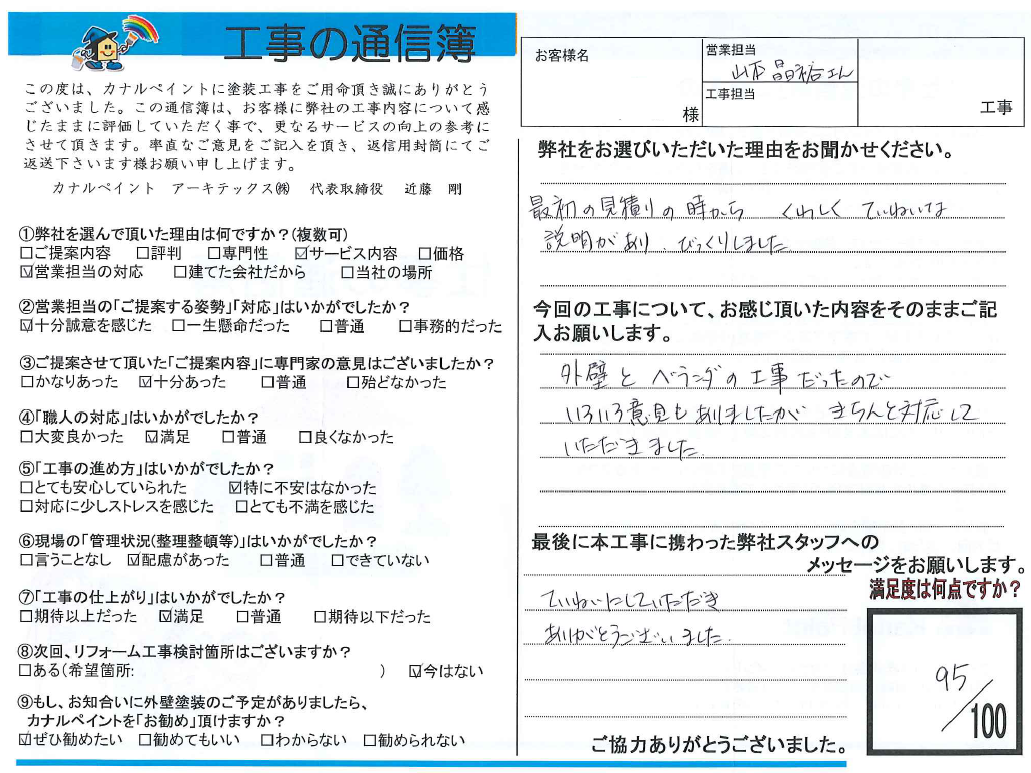 工事の通信簿
この度は、カナルペイントに塗装工事をご用命頂き誠にありがとう
ございました。この通信簿は、お客様に弊社の工事内容について感
じたままに評価していただく事で、更なるサービスの向上の参考に
させて頂きます。率直なご意見をご記入を頂き、返信用封筒にてご
返送下さいます様お願い申し上げます。
カナルペイント アーキテックス㈱ 代表取締役 近藤 剛
①弊社を選んで頂いた理由は何ですか?(複数可)
□ご提案内容 □評判 □専門性 ☑サービス内容 □価格
☑営業担当の対応 □建てた会社だから □当社の場所
②営業担当の「ご提案する姿勢」「対応」はいかがでしたか?
☑十分誠意を感じた □一生懸命だった □普通 □事務的だった
③ご提案させて頂いた「ご提案内容」に専門家の意見はございましたか?
□かなりあった ☑十分あった □普通 □殆どなかった
④「職人の対応」はいかがでしたか?
□大変良かった ☑満足 □普通 □良くなかった
⑤「工事の進め方」はいかがでしたか?
□とても安心していられた ☑特に不安はなかった
□対応に少しストレスを感じた □とても不満を感じた
⑥現場の「管理状況(整理整頓等)」はいかがでしたか?
□言うことなし ☑配慮があった □普通 □できていない
⑦「工事の仕上がり」はいかがでしたか?
□期待以上だった ☑満足 □普通 □期待以下だった
⑧次回、リフォーム工事検討箇所はございますか?
□ある(希望箇所: ) ☑今はない
⑨もし、お知合いに外壁塗装のご予定がありましたら、
カナルペイントを「お勧め」頂けますか?
☑ぜひ勧めたい □勧めてもいい □わからない □勧められない
お客様名
様
営業担当
山本晶裕さん
工事担当
工事
弊社をお選びいただいた理由をお聞かせください。
最初の見積りの時から くわしく ていねいな
説明があり びっくりしました
今回の工事について、お感じ頂いた内容をそのままご記
入お願いします。
外壁とベランダの工事だったので
いろいろ意見もありましたが きちんと対応して
いただきました.
最後に本工事に携わった弊社スタッフへの
メッセージをお願いします。
ていねいにしていただき
ありがとうございました.
満足度は何点ですか?
95/100
ご協力ありがとうございました。